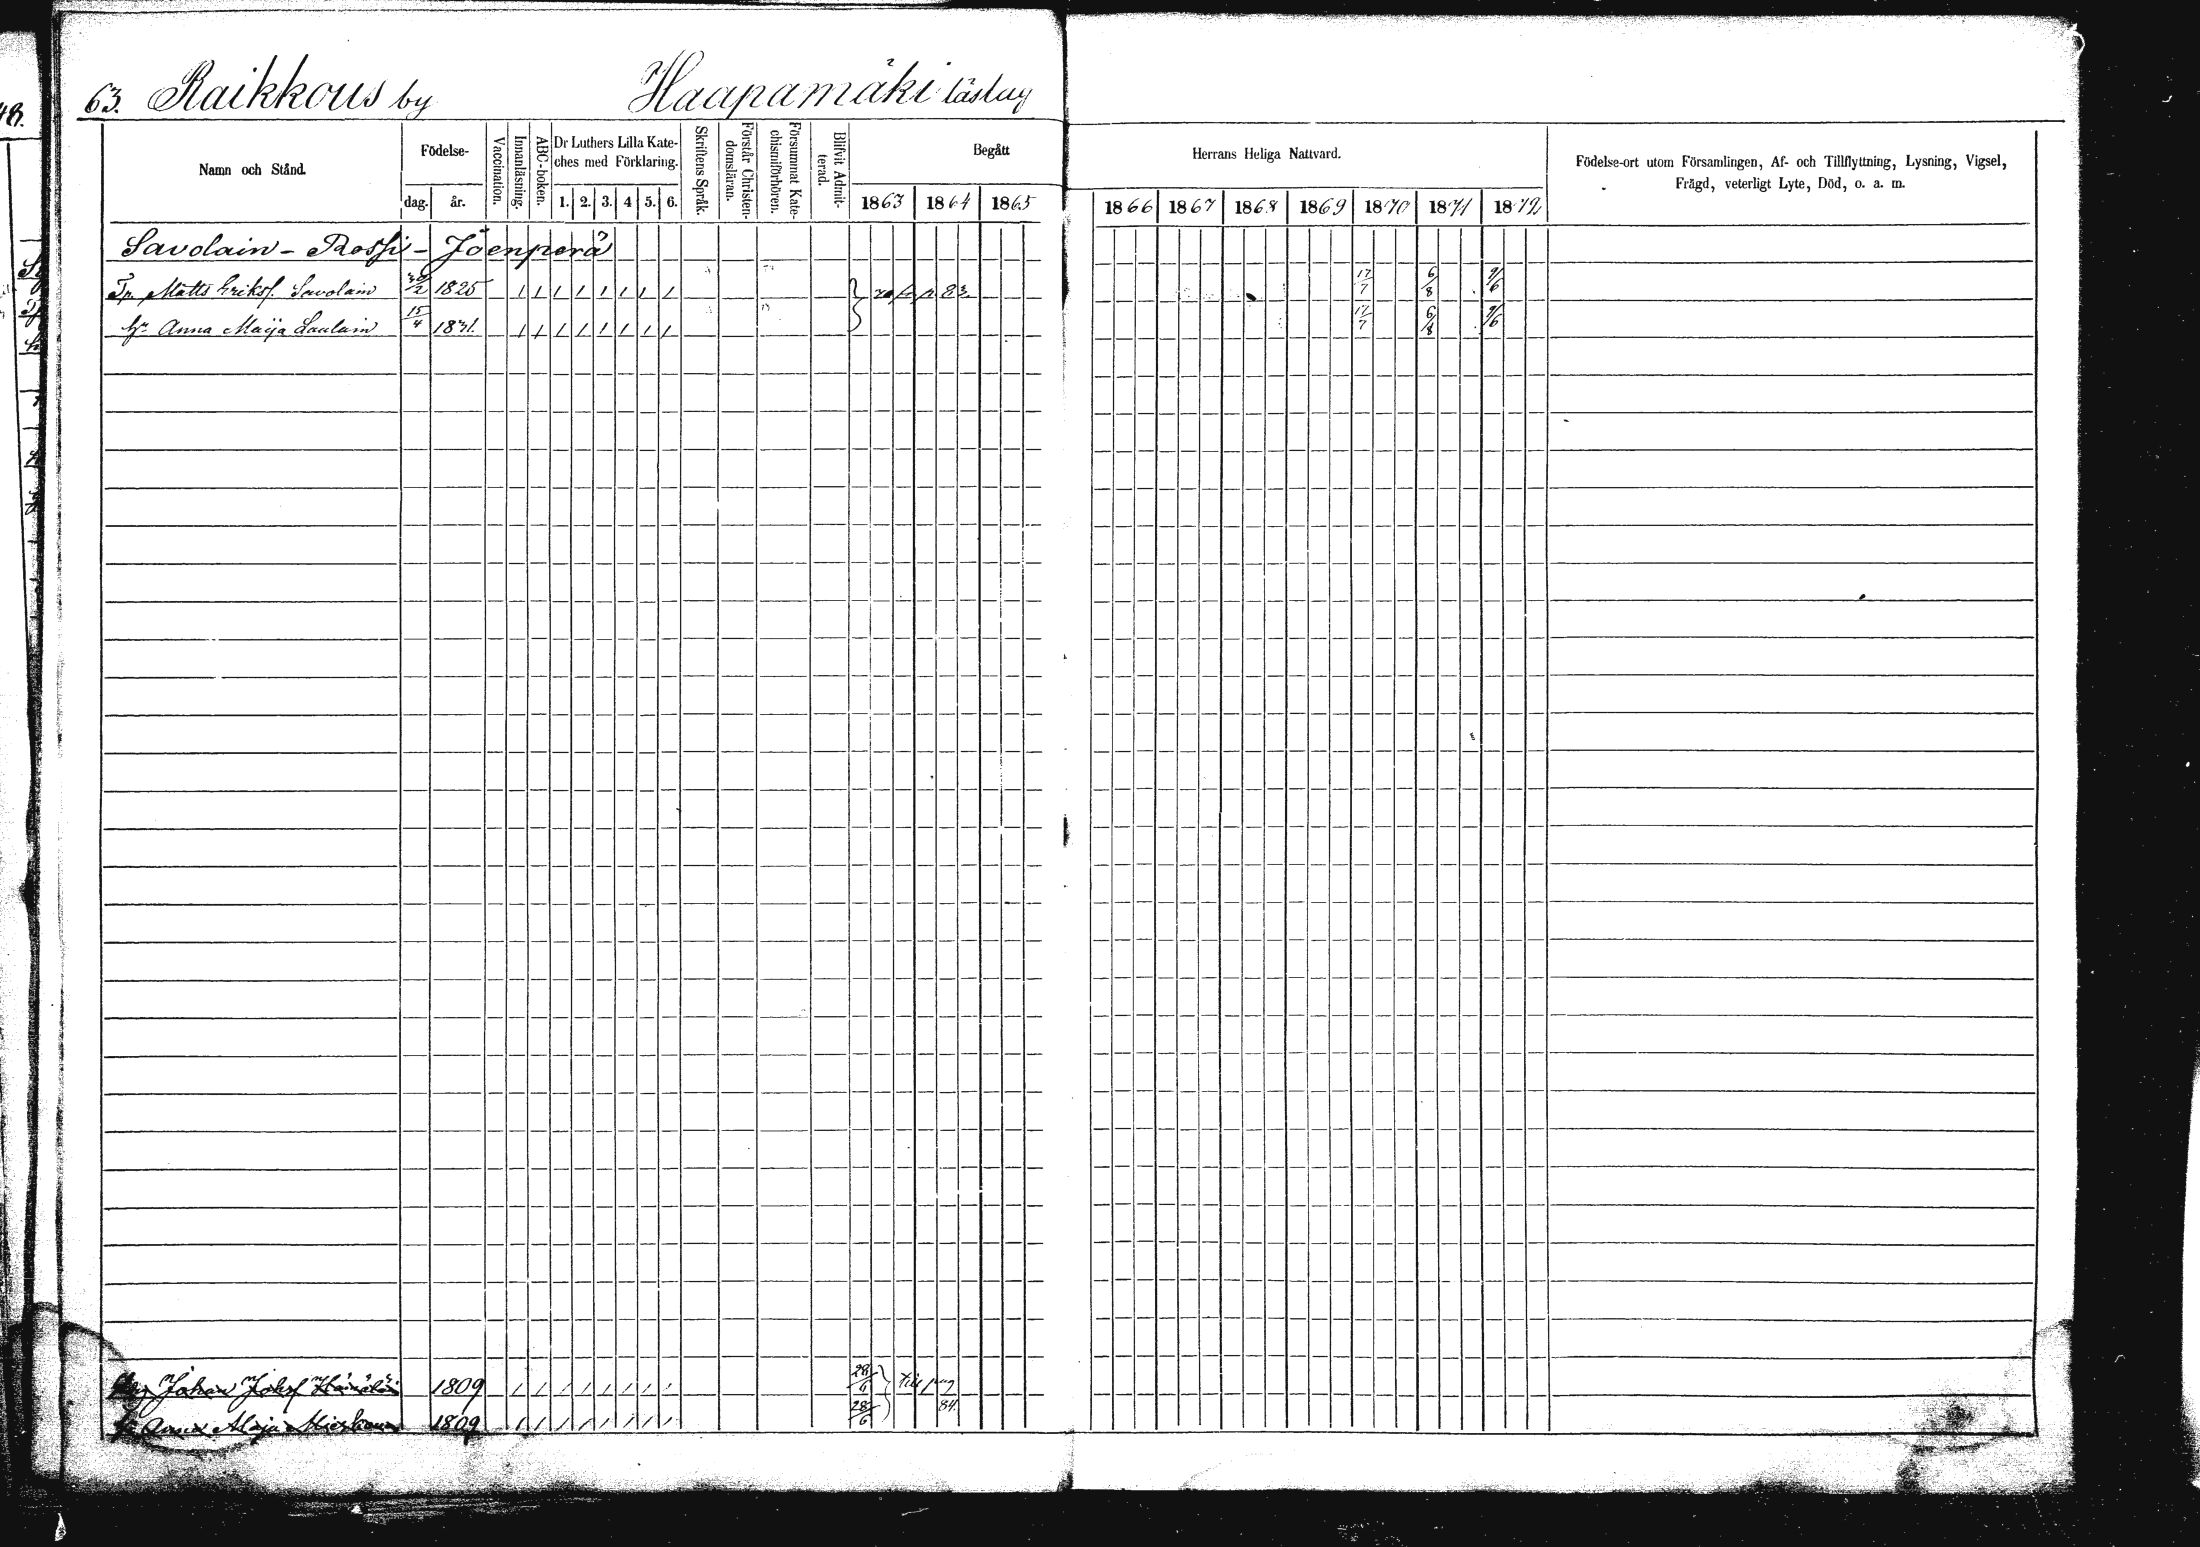 63. Raikkous by Haapamäki läslag
Namn och Stånd.
Födelse-
dag. år.
Vaccination.
Innanläsning.
ABC-boken.
Dr Luthers Lilla Kate-
ches med Förklaring.
1. 2. 3. 4 5. 6.
Skriftens Språk.
Förstår Christen-
domsläran.
Försummat Kate-
chismiförhören.
Blifvit Admit-
terad.
Begått
1863 1864 1865
Herrans Heliga Nattvard.
1866 1867 1868 1869 1870 1871 1872
Födelse-ort utom Församlingen, Af- och Tillflyttning, Lysning, Vigsel,
Frägd, veterligt Lyte, Död, o. a. m.
Savolain - Rossi - Joenperä
Tp. Matts Eriksf. Savolain 1825 17/7 6/8 9/6
hu Anna Maija Laulain 15/4 1831. 17/7 6/8 9/6
Johan Johsf 1809 28/6 till pag
Anna Maja 1809 28/6 84.